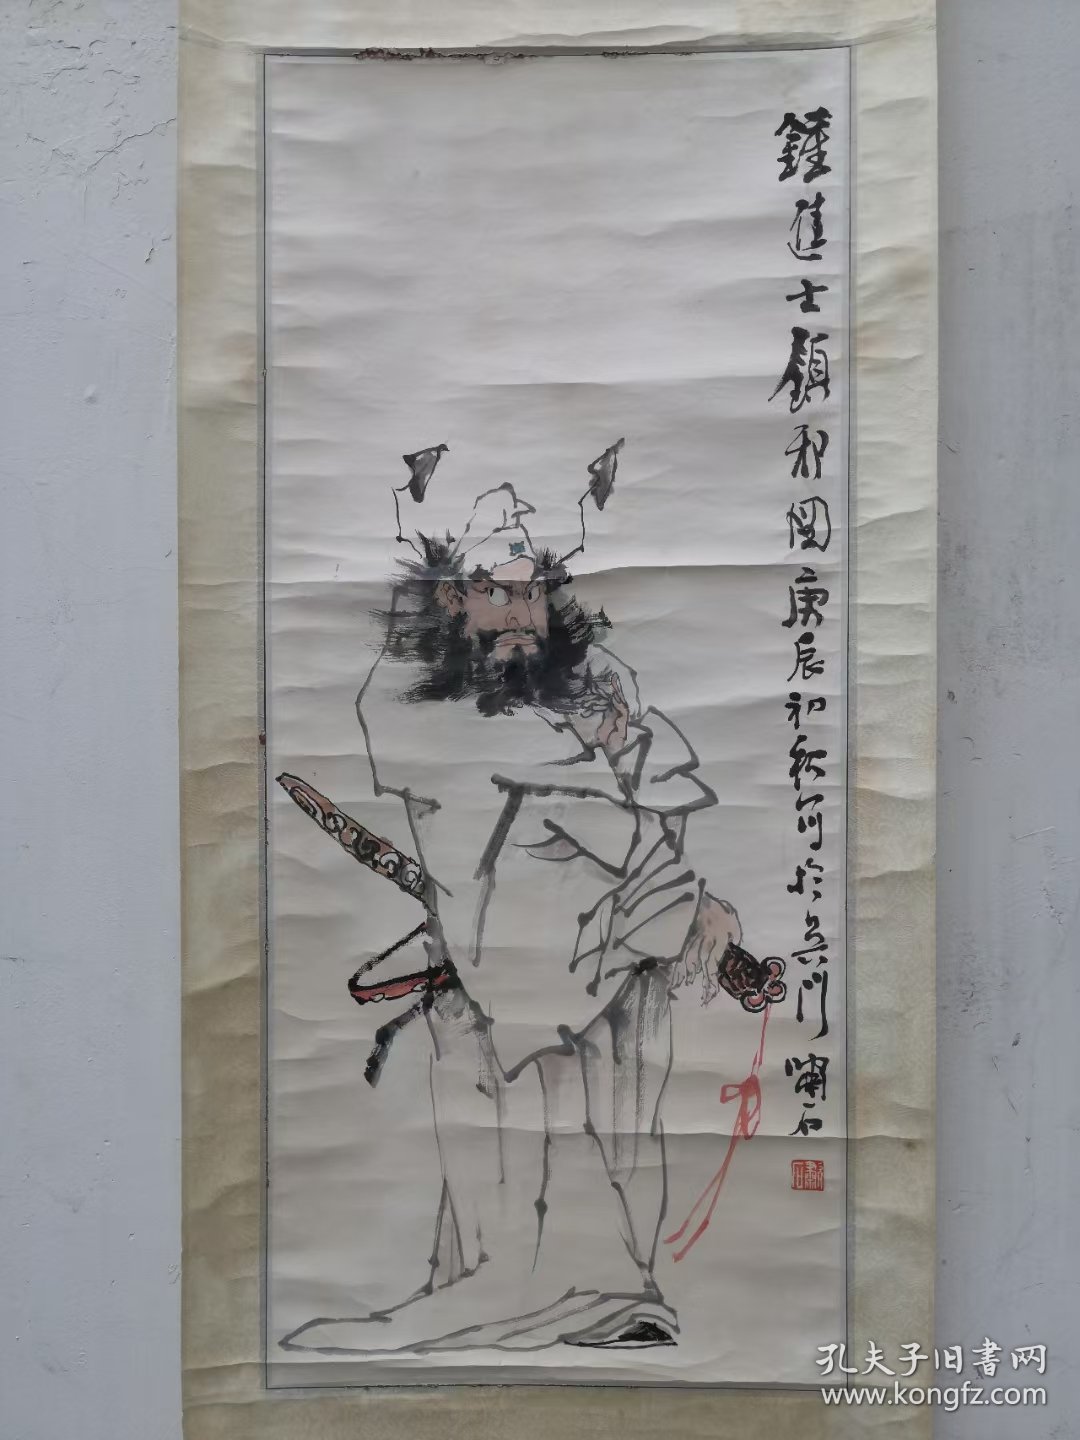 鍾進士鎮邪圖庚辰初秋寫於吳門嘯石
孔夫子旧書网
www.kongfz.com